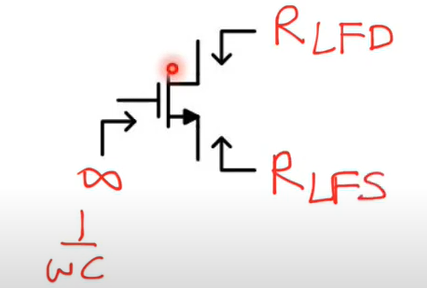 R LFD
R LFS
∞
1
WC